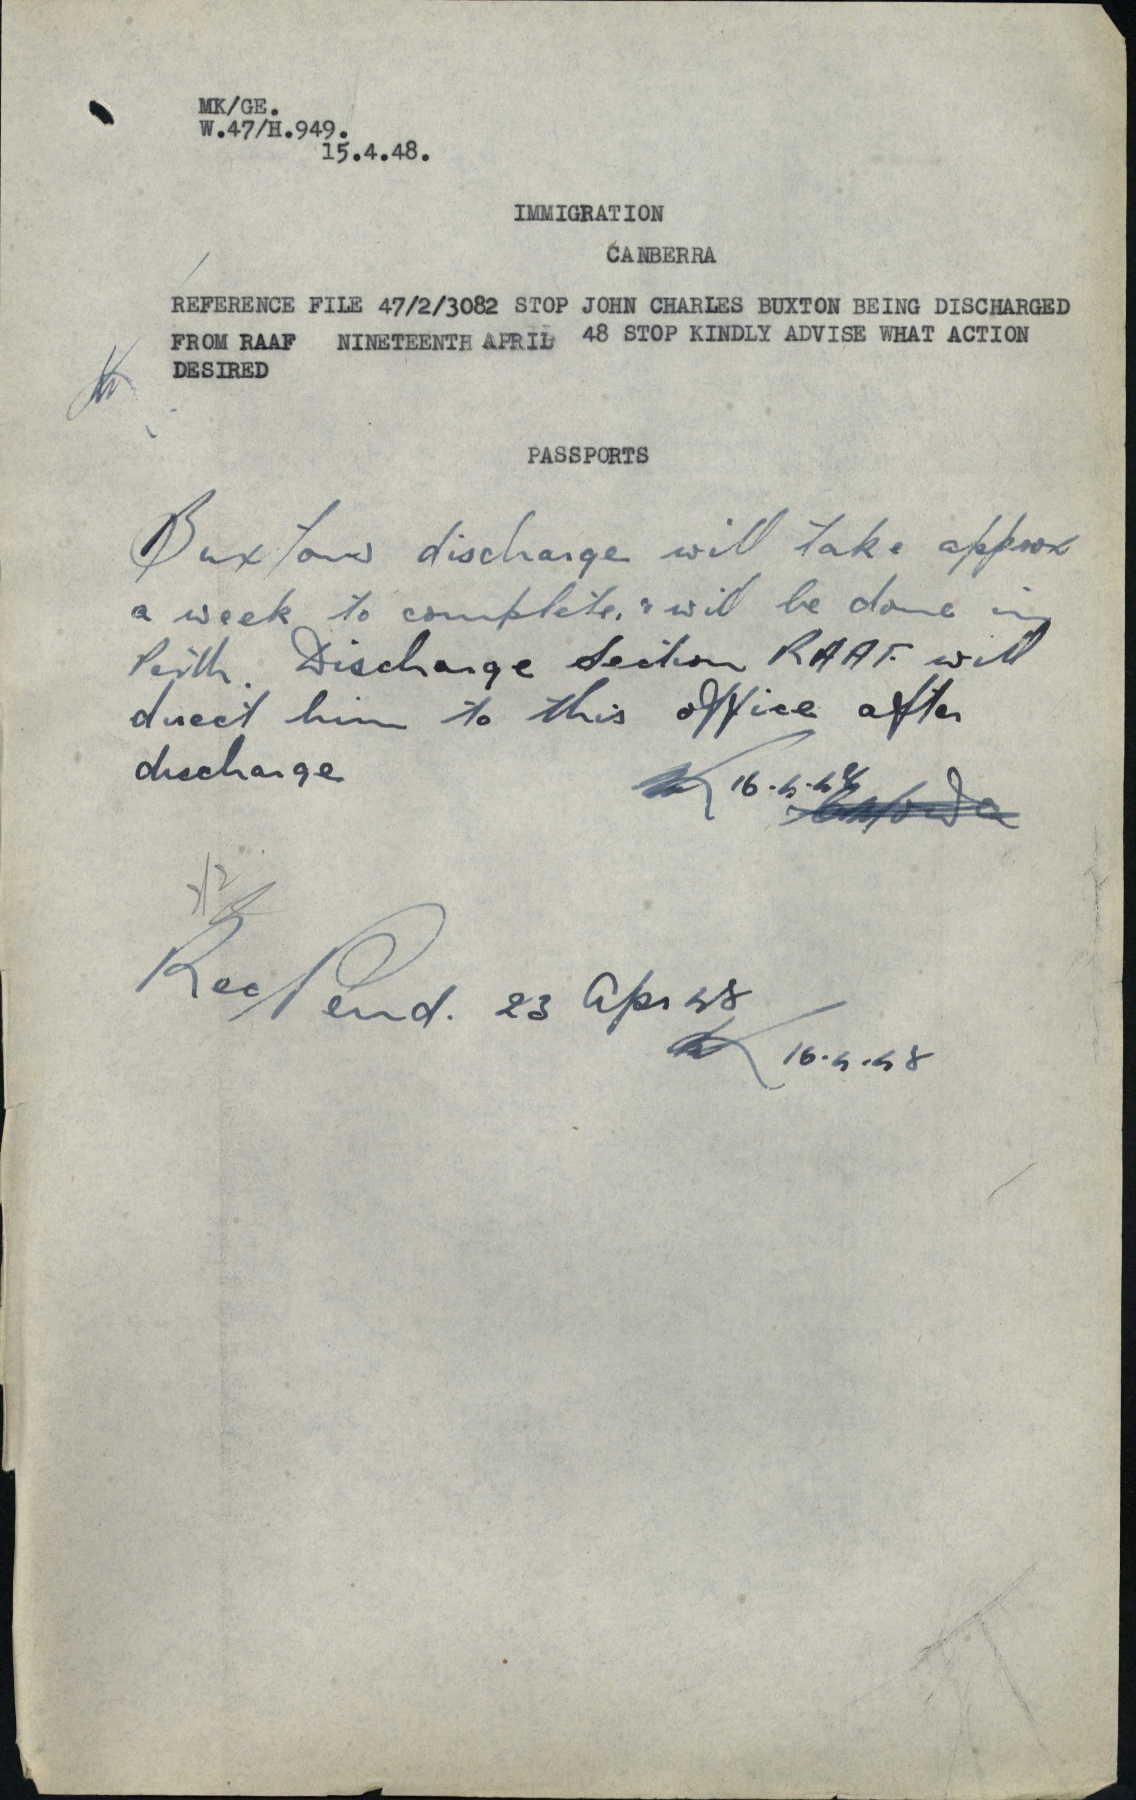 MK/GE.
W.47/H.949.
15.4.48.
IMMIGRATION
CANBERRA
REFERENCE FILE 47/2/3082 STOP JOHN CHARLES BUXTON BEING DISCHARGED
FROM RAAF NINETEENTH APRIL 48 STOP KINDLY ADVISE WHAT ACTION
DESIRED
PASSPORTS
Buxtons discharge will take approx
a week to complete, & will be done in
Perth. Discharge Section RAAF. will
direct him to this office after
discharge
16.4.48
Rec/Pend. 23 Apr 48
16.4.48